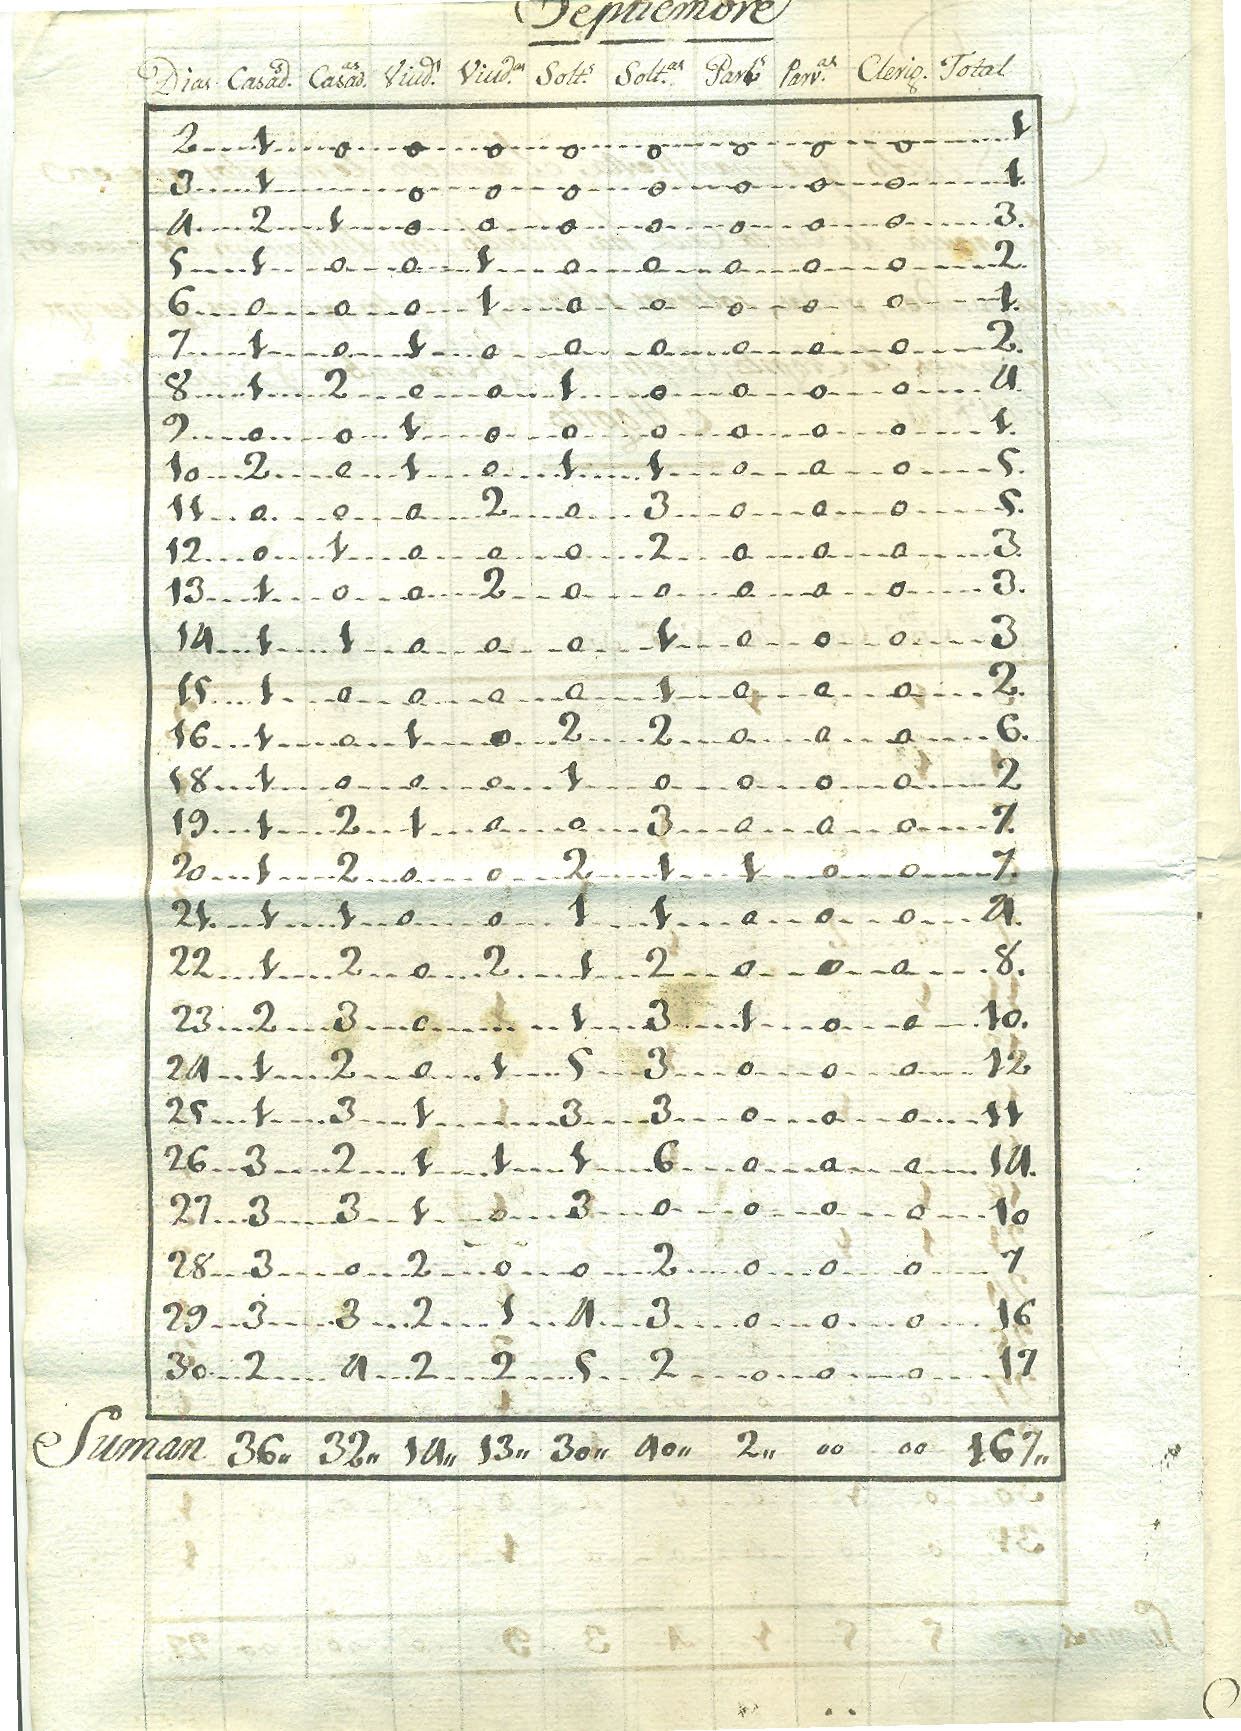 Septiembre
Dias Casad.s Casad.as Viud.s Viud.as Solt.s Solt.as Parv.s Parv.as Clerig. Total
2 1 0 0 0 0 0 0 0 0 1
3 1 0 0 0 0 0 0 0 1
4 2 1 0 0 0 0 0 0 0 3.
5 1 0 0 1 0 0 0 0 0 2
6 0 0 0 1 0 0 0 0 0 1.
7 1 0 1 0 0 0 0 0 0 2.
8 1 2 0 0 1 0 0 0 0 4
9 0 0 1 0 0 0 0 0 0 1.
10 2 0 1 0 1 1 0 0 0 5.
11 0 0 0 2 0 3 0 0 0 5.
12 0 1 0 0 0 2 0 0 0 3.
13 1 0 0 2 0 0 0 0 0 3.
14 1 1 0 0 0 1 0 0 0 3
15 1 0 0 0 0 1 0 0 0 2.
16 1 0 1 0 2 2 0 0 0 6.
18 1 0 0 0 1 0 0 0 0 2
19 1 2 1 0 0 3 0 0 0 7.
20 1 2 0 0 2 1 1 0 0 7.
21. 1 1 0 0 1 1 0 0 0 4.
22 1 2 0 2 1 2 0 0 0 8.
23 2 3 0 1 3 1 0 0 10.
24 1 2 0 1 5 3 0 0 0 12
25 1 3 1 3 3 0 0 0 11
26 3 2 1 1 1 6 0 0 0 14.
27 3 3 1 0 3 0 0 0 0 10
28 3 0 2 0 0 2 0 0 0 7
29 3 3 2 1 4 3 0 0 0 16
30 2 4 2 2 5 2 0 0 0 17
Suman 36,, 32,, 14,, 13,, 30,, 40,, 2,, 00 00 167,,